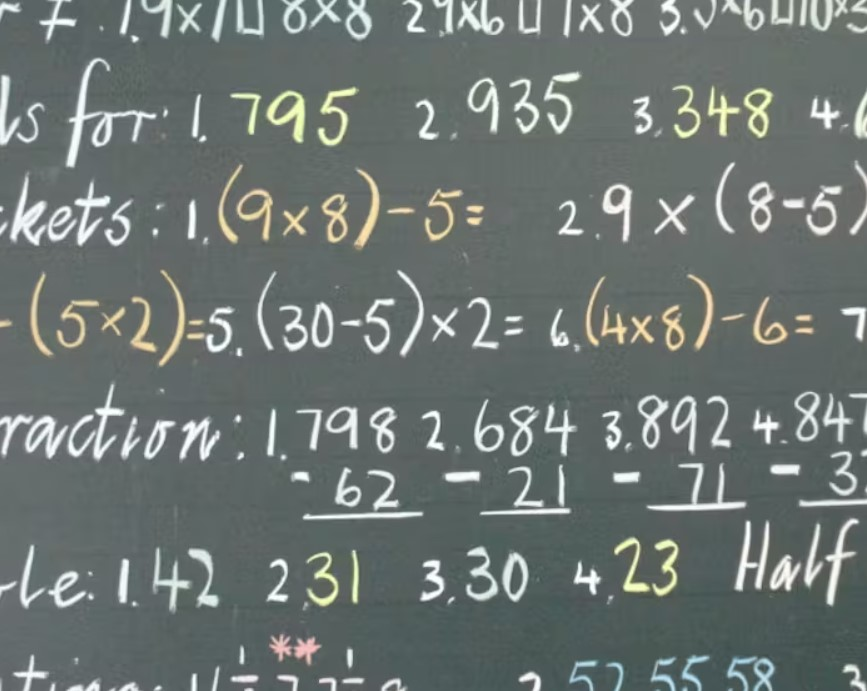 ≠ 1. 9×7□ 8×8 2. 9×6□ 7×8 3.
ls for: 1. 795 2. 935 3. 348 4.
kets: 1. (9×8)-5= 2. 9×(8-5)
-(5×2)= 5. (30-5)×2= 6. (4×8)-6= 7
raction: 1. 798 2. 684 3. 892 4. 847
- 62 - 21 - 71 - 3
le: 1. 42 2. 31 3. 30 4. 23 Half
** 52 55 58